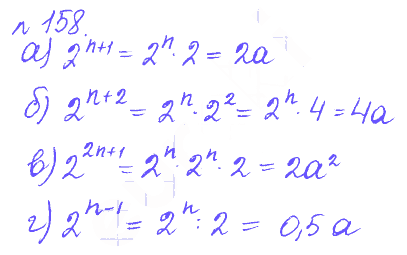 n 158.
а) 2^{n+1} = 2^n · 2 = 2a
б) 2^{n+2} = 2^n · 2^2 = 2^n · 4 = 4a
в) 2^{2n+1} = 2^n · 2^n · 2 = 2a^2
г) 2^{n-1} = 2^n : 2 = 0,5 a